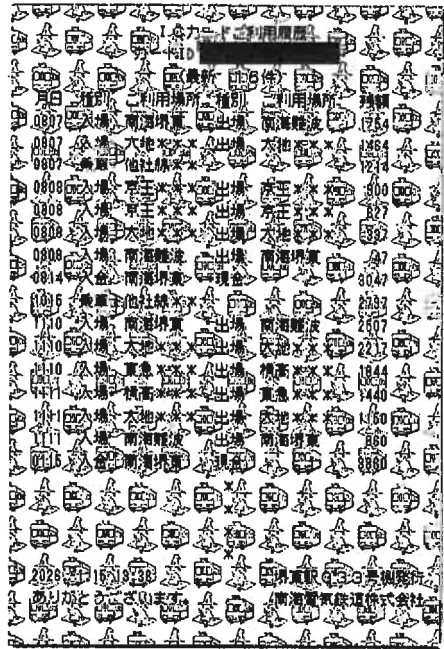 ICカードご利用履歴
カードID
(最新 件)
月日 種別 ご利用場所 種別 ご利用場所 残額
0807 入場 南海堺東 出場 南海難波 1754
0807 入場 大地*** 出場 大地*** 1464
0807 乗車 他社線** 1214
0808 入場 京王*** 出場 京王*** 900
0808 入場 京王*** 出場 京王*** 627
0808 入場 大地*** 出場 大地*** 337
0808 入場 南海難波 出場 南海堺東 47
0814 入金 南海堺東 現金 3047
1015 乗車 他社線** 2797
1110 入場 南海堺東 出場 南海難波 2507
1110 入場 大地*** 出場 大地*** 2217
1110 入場 東急*** 出場 横高*** 1844
1111 入場 横高*** 出場 東急*** 1440
1111 入場 大地*** 出場 大地*** 1150
1111 入場 南海難波 出場 南海堺東 860
0115 入金 南海堺東 現金 8860
堺東駅 号機発行
ありがとうございます。 南海電気鉄道株式会社